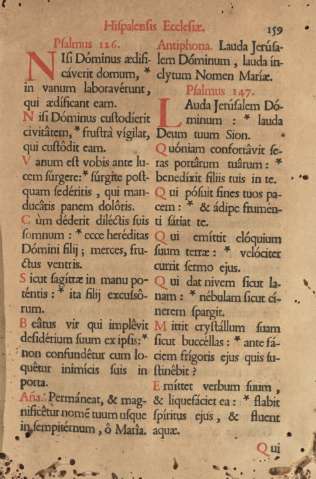 Hispalensis Ecclesiæ.
159
Psalmus 126.
NIsi Dóminus ædifi-
cáverit domum, *
in vanum laboravérunt,
qui ædificant eam.
Nisi Dóminus custodierit
civitâtem, * frustrà vígilat,
qui custôdit eam.
Vanum est vobis ante lu-
cem súrgere: * súrgite post-
quam sedéritis, qui man-
ducâtis panem dolôris.
Cùm déderit diléctis suis
somnum: * ecce heréditas
Dómini filij; merces, fru-
ctus ventris.
Sicut sagíttæ in manu po-
téntis: * ita filij excussô-
rum.
Beâtus vir qui implêvit
desidérium suum ex ipsis: *
non confundêtur cum lo-
quêtur inimícis suis in
porta.
Aña. Permáneat, & mag-
nificêtur nomē tuum usque
in sempitérnum, ô Maria.
Antiphona. Lauda Jerúsa-
lem Dóminum, lauda in-
clytum Nomen Mariæ.
Psalmus 147.
LAuda Jerúsalem Dó-
minum: * lauda
Deum tuum Sion.
Quóniam confortâvit se-
ras portârum tuârum: *
benedíxit filiis tuis in te.
Qui pósuit fines tuos pa-
cem: * & ádipe frumén-
ti sátiat te.
Qui emíttit elóquium
suum terræ: * velóciter
currit sermo ejus.
Qui dat nivem sicut la-
nam: * nébulam sicut cí-
nerem spargit.
Mittit crystállum suam
sicut buccéllas: * ante fá-
ciem frígoris ejus quis su-
stinébit?
Emíttet verbum suum,
& liquefáciet ea: * flabit
spíritus ejus, & fluent
aquæ.
Qui